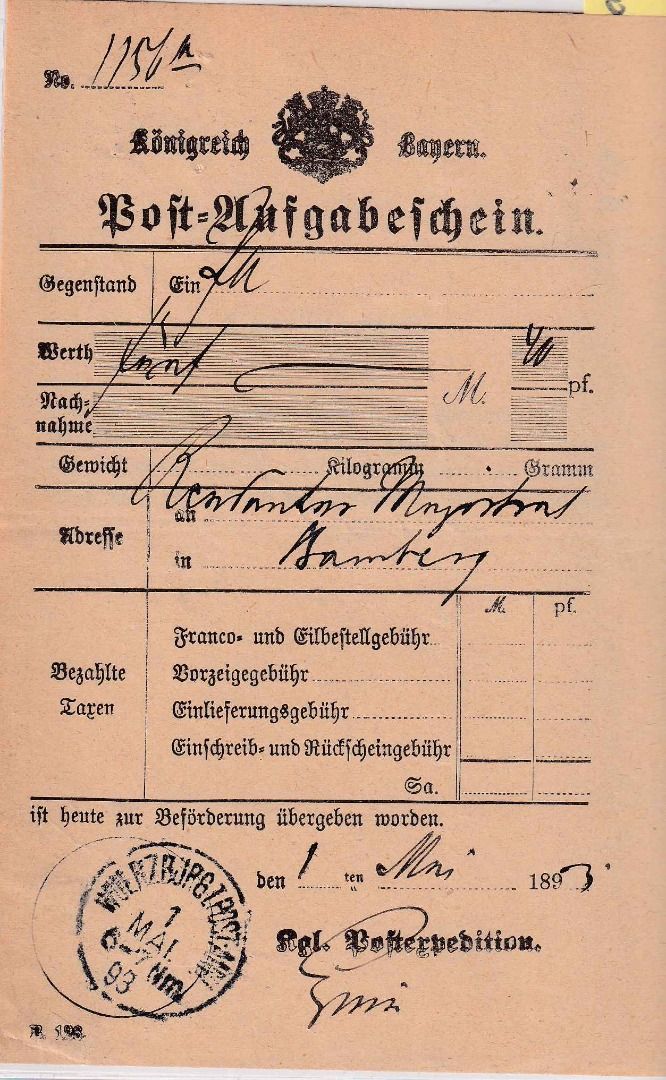 No. 1156a
Königreich Bayern.
Post-Aufgabeschein.
Gegenstand Ein
Werth fünf M. 40 pf.
Nachnahme
Gewicht Kilogramm Gramm
Adresse an Magistrat
in Bamberg
M. pf.
Bezahlte Taxen
Franco- und Eilbestellgebühr
Vorzeigegebühr
Einlieferungsgebühr
Einschreib- und Rückscheingebühr
Sa.
ist heute zur Beförderung übergeben worden.
den 1 ten Mai 1893
Kgl. Postexpedition.
WUERZBURG I. POSTAMT
1
MAI.
6-7 Nm
93